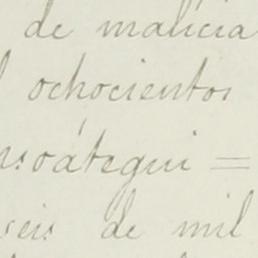 de malicia
ochocientos
soátegui =
seis de mil